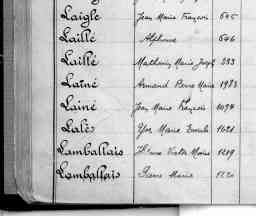 Laigle Jean Marie François 645
Laillé Alphonse 646
Laillé Mathurin Marie Joseph 333
Lainé Armand Pierre Marie 1983
Lainé Jean Marie François 1094
Lalés Yves Marie 1621
Lamballais Victor 1219
Lamballais Pierre Marie 1220